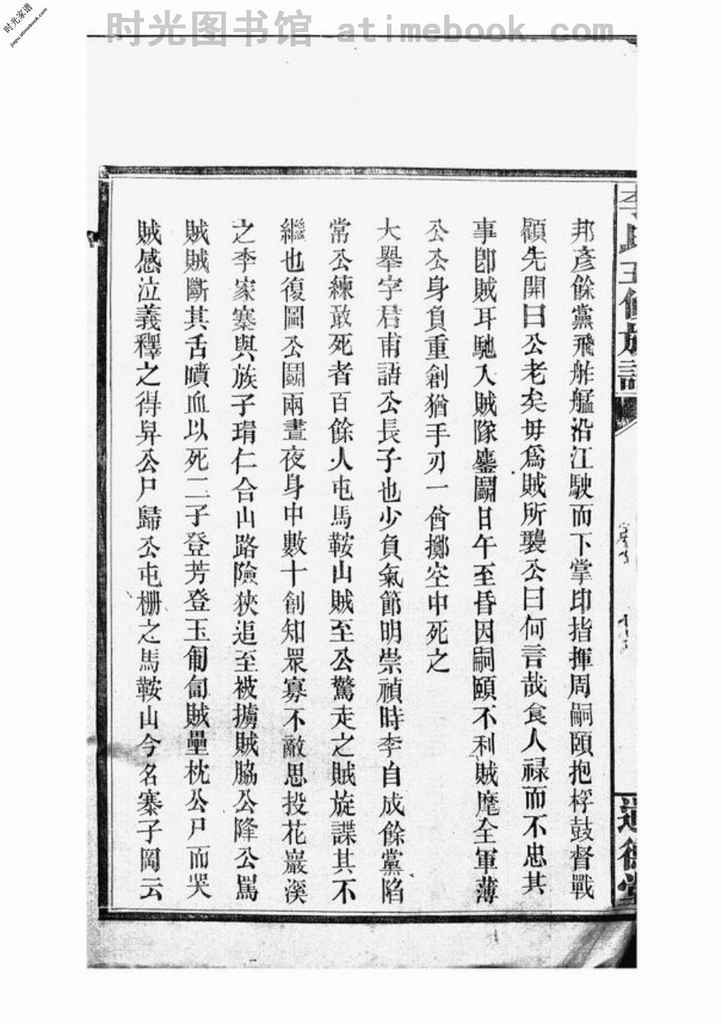 时光图书馆 atimebook.com
时光家谱
jiapu.atimebook.com
李氏五修族譜
邦彥餘黨飛舴艋沿江駛而下掌印指揮周嗣頤抱桴鼓督戰
頤先開曰公老矣毋爲賊所襲公曰何言哉食人祿而不忠其
事卽賊耳馳入賊隊鏖鬬日午至昏因嗣頤不利賊麾全軍薄
公公身負重創猶手刃一酋擲空中死之
大舉字君甫語公長子也少負氣節明崇禎時李自成餘黨陷
常公練敢死者百餘人屯馬鞍山賊至公驚走之賊旋諜其不
繼也復圍公鬬兩晝夜身中數十創知衆寡不敵思投花巖溪
之李家寨與族子瑁仁合山路險狹追至被擄賊脇公降公罵
賊賊斷其舌噴血以死二子登芳登玉匍匐賊壘枕公尸而哭
賊感泣義釋之得舁公尸歸公屯柵之馬鞍山今名寨子岡云
道德堂